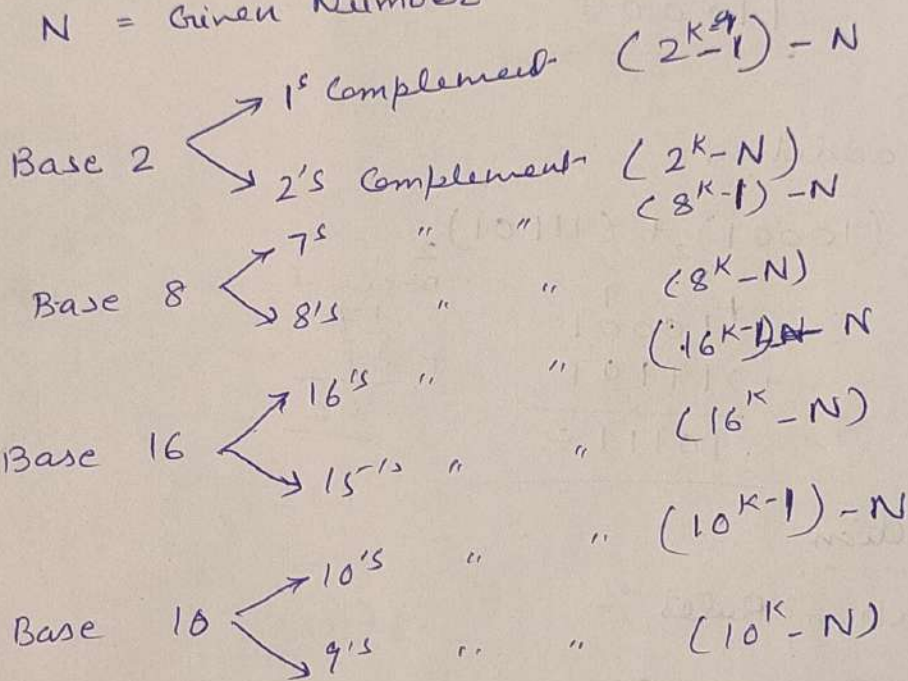 N = Given Number
Base 2
1's Complement (2^K-1) - N
2's Complement (2^K-N)
Base 8
7's " " (8^K-1) - N
8's " " (8^K-N)
Base 16
16's " " (16^K-1) - N
15's " " (16^K-N)
Base 10
10's " " (10^K-1) - N
9's " " (10^K-N)